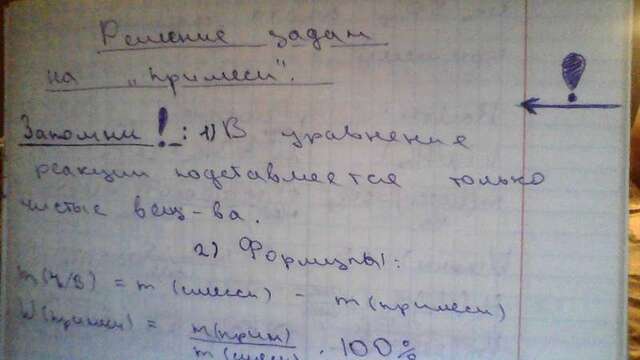 Решение задач
на "примеси".
Запомни!: 1) В уравнение
реакции подставляется только
чистые вещ-ва.
2) Формулы:
m(ч/в) = m(смеси) - m(примеси)
W(примеси) = m(прим) / m(смеси) · 100%
!